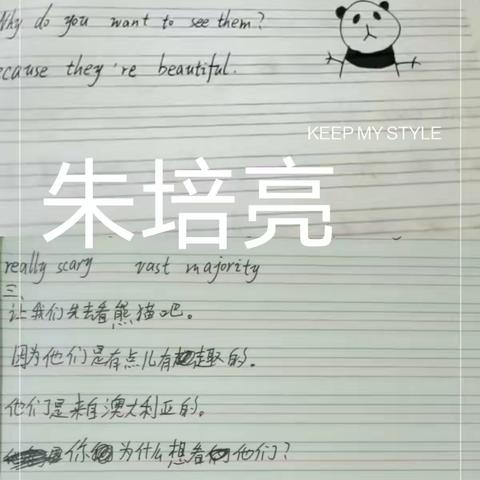 Why do you want to see them?
ecause they're beautiful.
KEEP MY STYLE
朱培亮
really scary vast majority
三、
让我们先去看熊猫吧。
因为他们是有点儿有趣的。
他们是来自澳大利亚的。
你为什么想看他们?